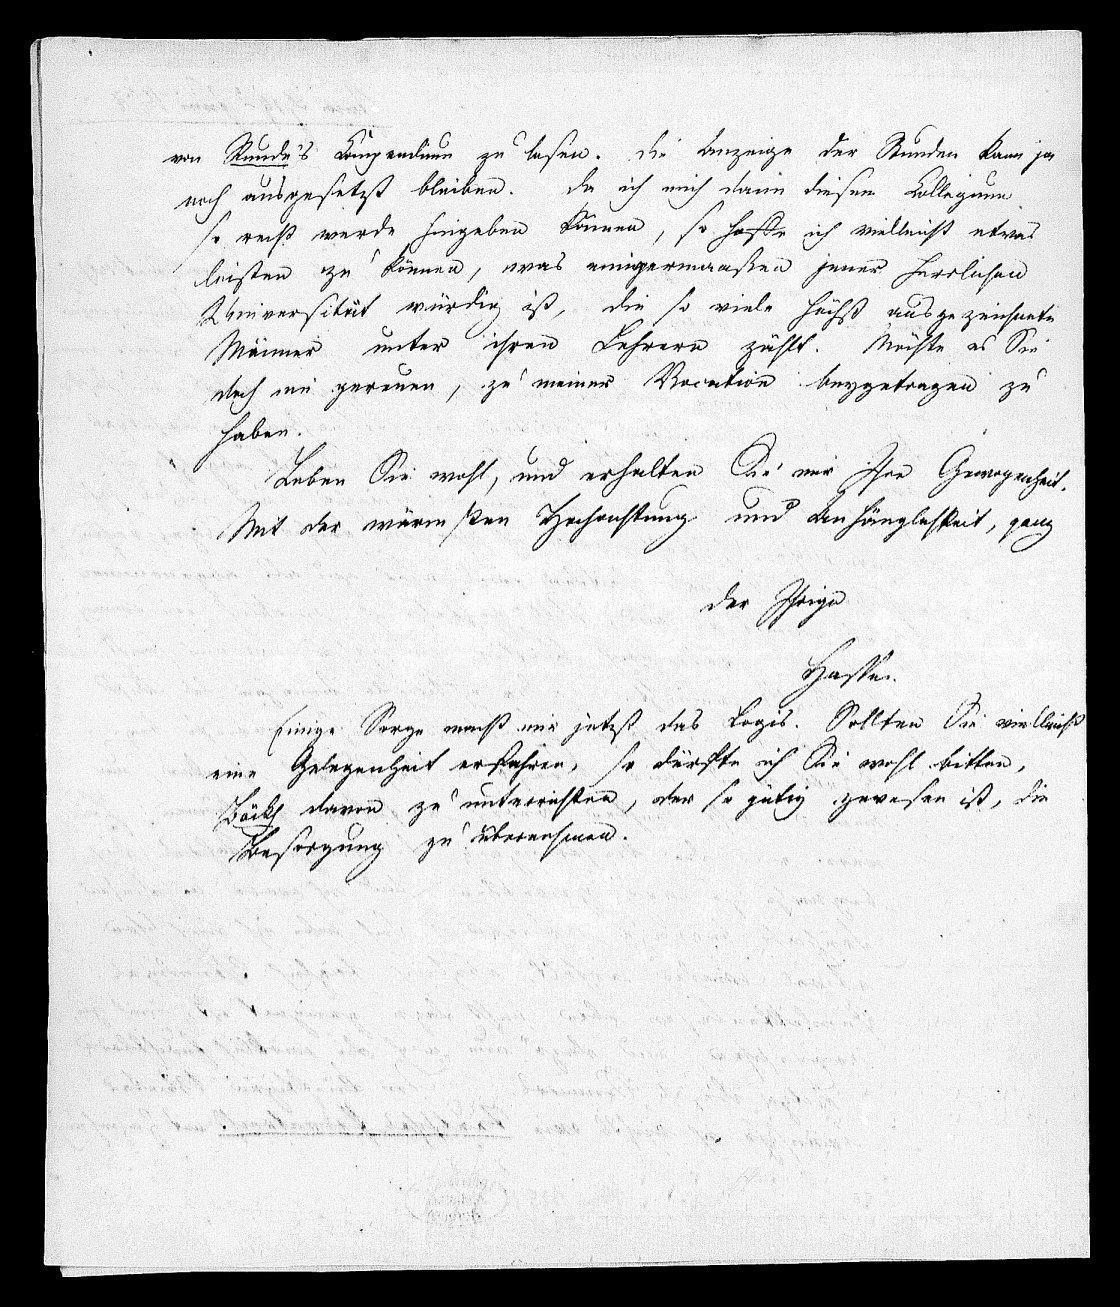 von Runde's Compendium zu lesen. Die Anzeige der Stunden kann ja
noch ausgesetzt bleiben. Da ich mich dann diesem Collegium
so recht werde hingeben können, so hoffe ich vielleicht etwas
leisten zu können, was einigermaaßen jener herrlichen
Universität würdig ist, die so viele höchst ausgezeichnete
Männer unter ihren Lehrern zählt. Möchte es Sie
doch nie gereuen, zu meiner Vocation beygetragen zu
haben.
Leben Sie wohl, und erhalten Sie mir Ihre Gewogenheit.
Mit der wärmsten Hochachtung und Anhänglichkeit, ganz
der Ihrige
Hasse.
Einige Sorge macht mir jetzt das Logis. Sollten Sie vielleicht
eine Gelegenheit erfahren, so dürfte ich Sie wohl bitten,
Böckh davon zu unterrichten, der so gütig gewesen ist, die
Besorgung zu übernehmen.